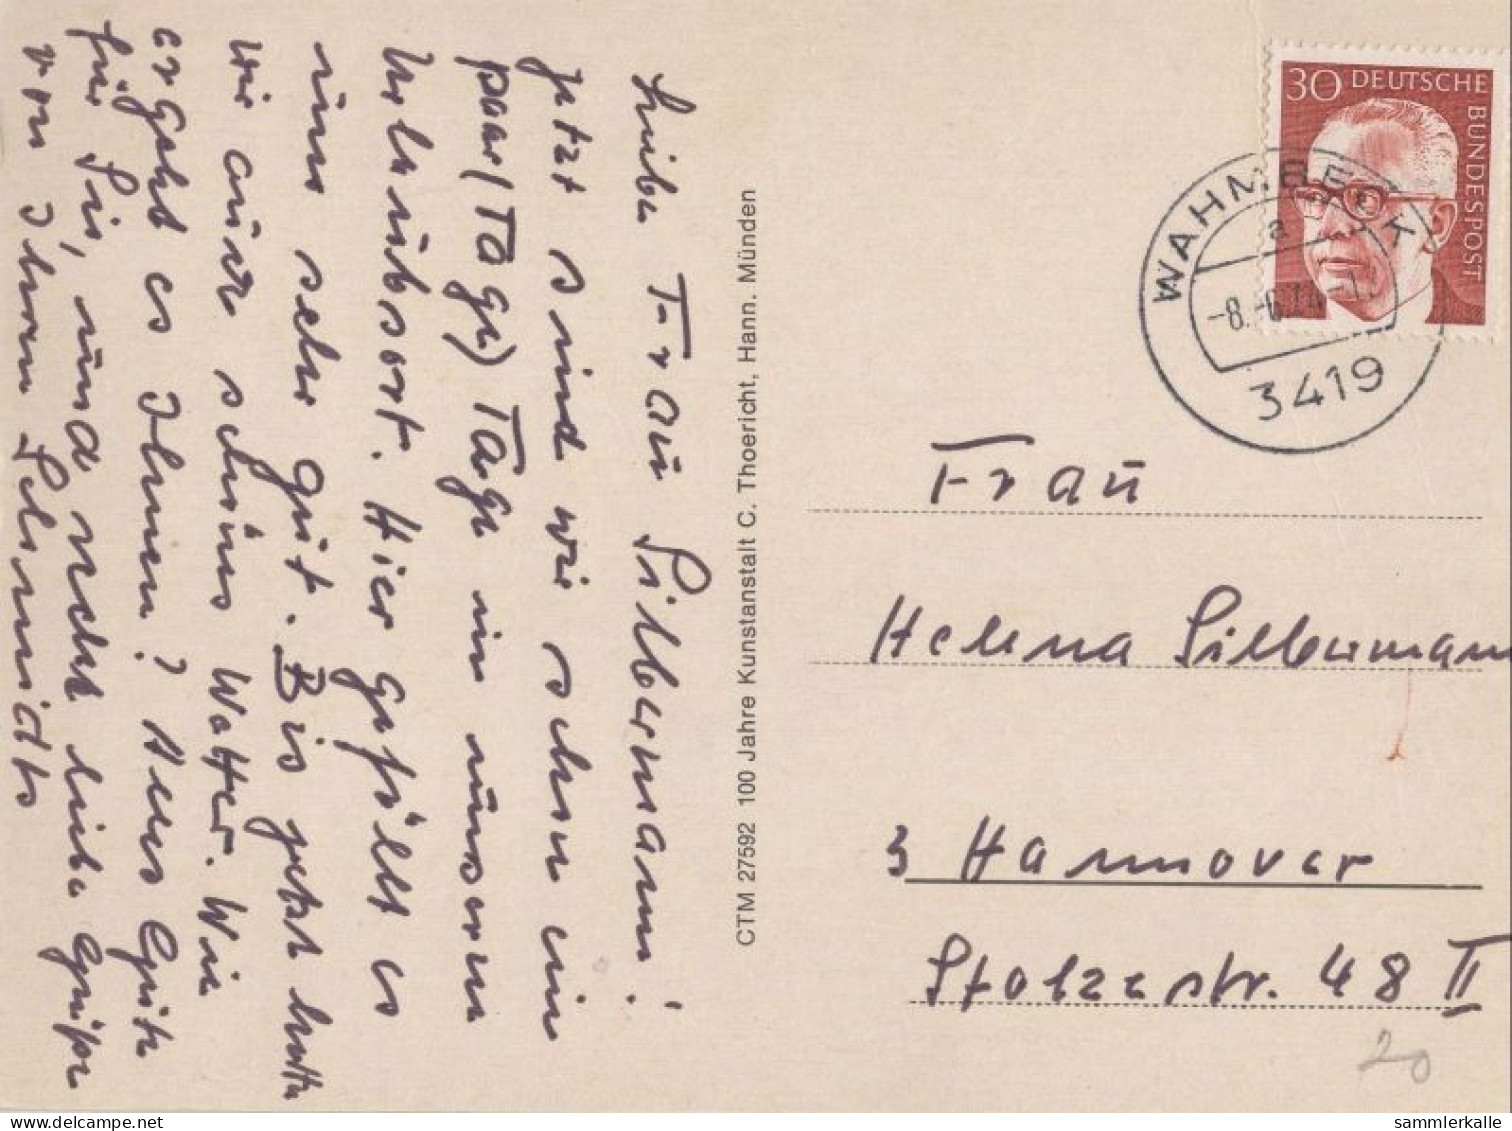 Liebe Frau Silbermann!
Jetzt sind wir schon ein
paar (Tage) Tage in unserem
Urlaubsort. Hier gefällt es
uns sehr gut. Bis jetzt hatten
wir auch schönes Wetter. Wie
ergeht es Ihnen? Alles Gute
für Sie, und recht liebe Grüße
von Ihren Schmidts
CTM 27592 100 Jahre Kunstanstalt C. Thoericht, Hann. Münden
30 DEUTSCHE BUNDESPOST
WAHMBECK
a
3419
Frau
Helena Silbermann
3 Hannover
Stolzestr. 48 II
20
sammlerkalle